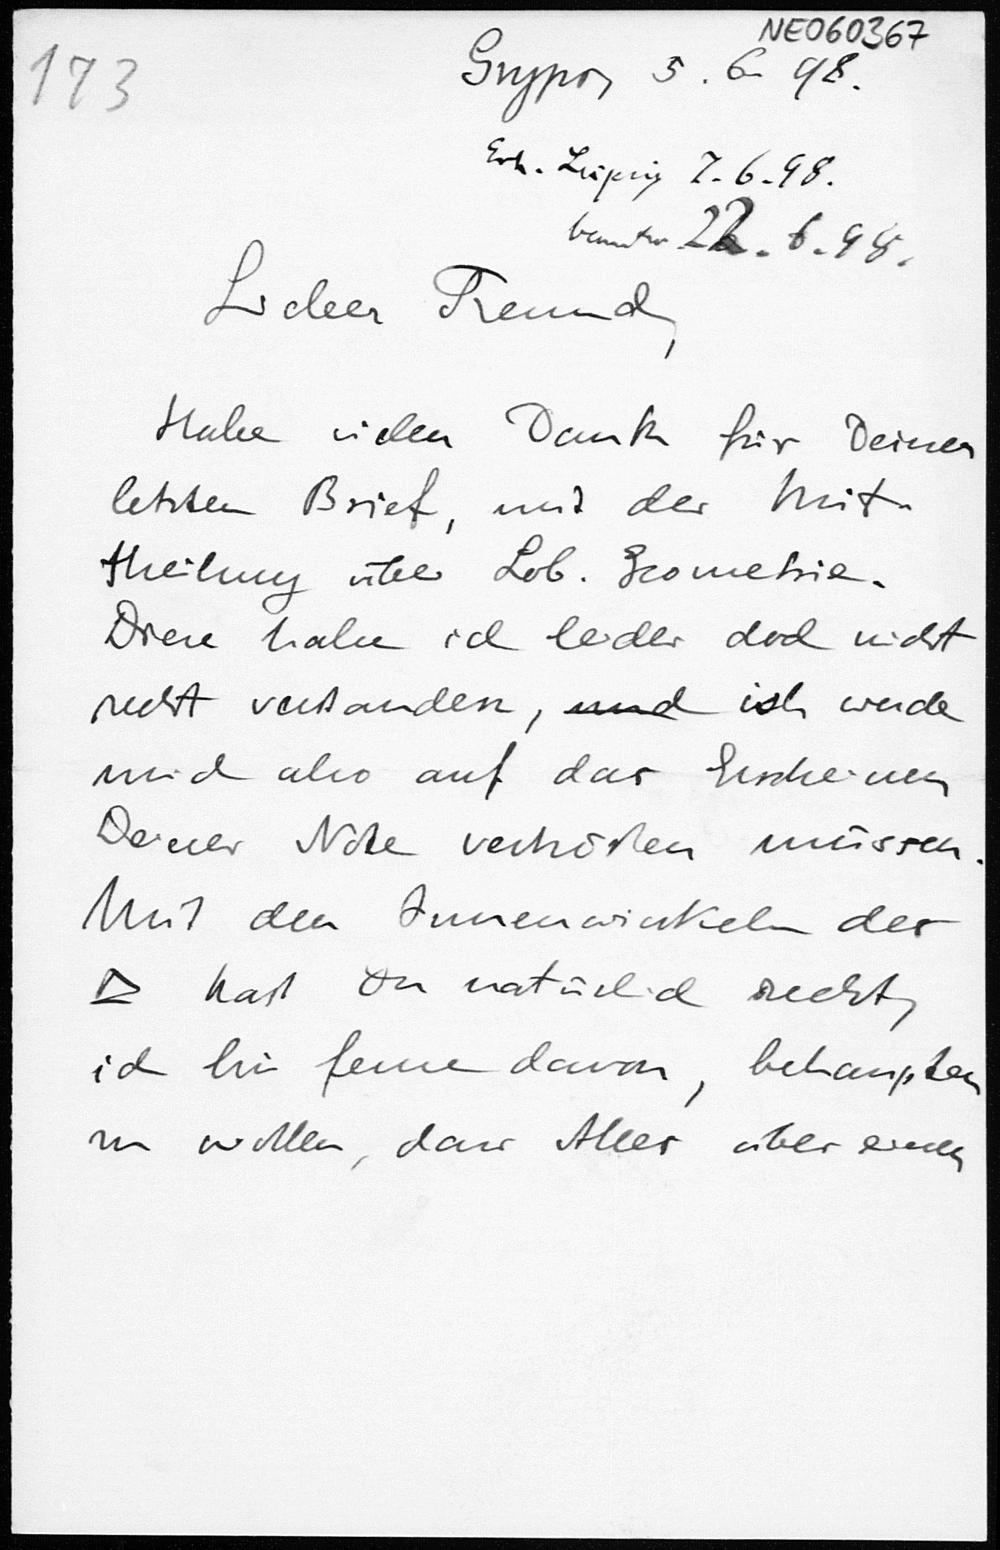 NE060367
173
Gryps, 5. 6. 98.
Erh. Leipzig 7. 6. 98.
beantw. 22. 6. 98.
Lieber Freund,
Habe vielen Dank für Deinen
letzten Brief, mit der Mit-
theilung über Lob. Geometrie.
Diese habe ich leider doch nicht
recht verstanden, und ich werde
mich also auf das Erscheinen
Deiner Note vertrösten müssen.
Mit den Innenwinkeln der
▷ hast Du natürlich recht,
ich bin ferne davon, behaupten
zu wollen, dass Alles über einen